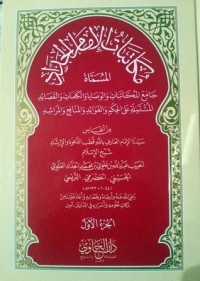 مكاتبات الإمام الحداد
المسماة
جامع المكاتبات والوصايا والكلمات والقصائد
المشتملة على الحكم والفوائد والمنافع
من أنفاس
سيدنا الإمام العارف بالله قطب الدعوة والإرشاد
شيخ الإسلام
الحبيب عبد الله بن علوي بن محمد الحداد العلوي
الحسيني الحضرمي التريمي
الجزء الأول
دار الحاوي